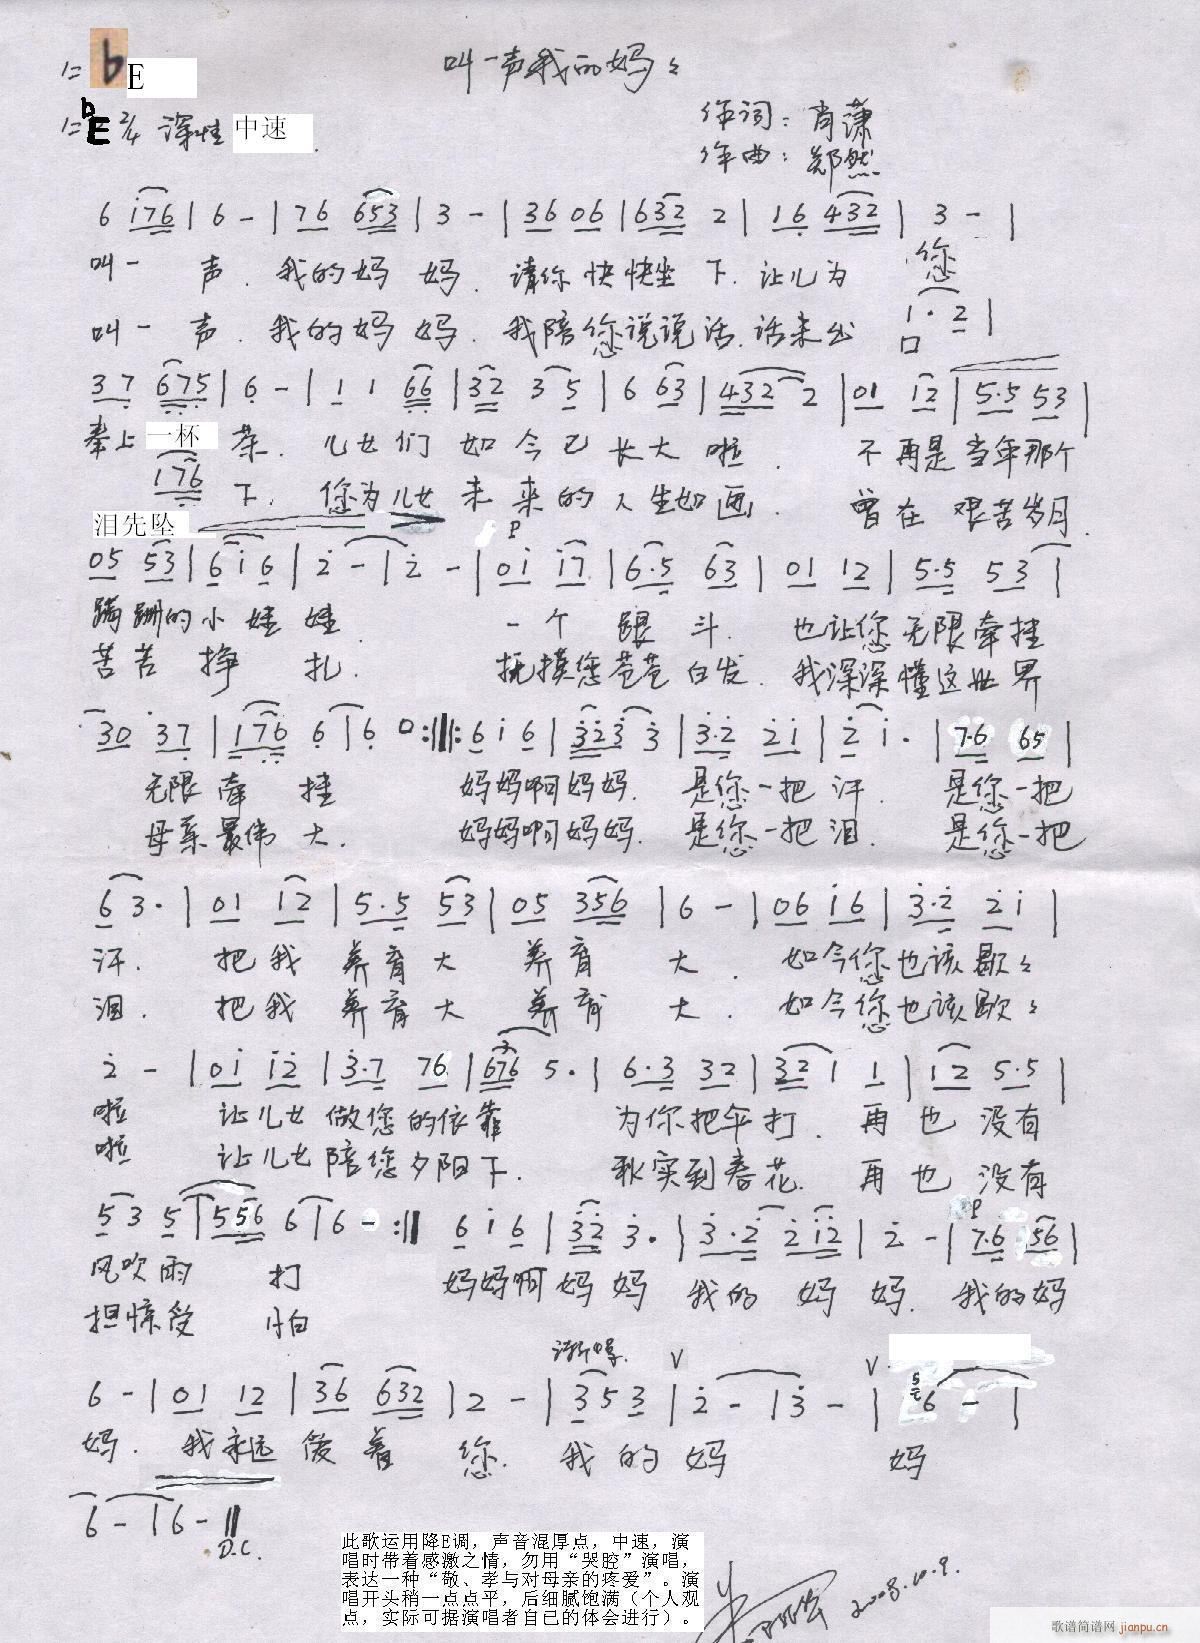 叫一声我的妈妈
1=bE
1=bE 2/4 深情 中速
作词：肖潇
作曲：郑然
6 i76 | 6 - | 76 653 | 3 - | 36 06 | 632 2 | 16 432 | 3 - |
叫一 声. 我的妈 妈. 请你 快快坐 下. 让儿为 您
叫一 声. 我的妈 妈. 我陪您说说话. 话未出 口
1·2 |
37 675 | 6 - | 1 1 66 | 32 3 5 | 6 63 | 432 2 | 01 12 | 5·5 53 |
奉上一杯 茶. 儿女们 如今已 长大 啦. 不再是当年那个
176
泪先坠 下. 您为儿女 未来的人生如画. 曾在 艰苦岁月.
P
05 53 | 6i6 | 2 - | 2 - | 0i i7 | 6·5 63 | 01 12 | 5·5 53 |
蹒跚的小娃 娃. 一个 跟斗. 也让您 无限牵挂
苦苦 挣 扎. 抚摸您苍苍白发. 我深深懂这世界
30 37 | 176 6 | 6 0 :||: 6 i 6 | 323 3 | 3·2 2i | 2 i· | 7·6 65 |
无限 牵 挂 妈妈啊妈妈. 是您一把 汗. 是您一把
母亲最伟大. 妈妈啊妈妈. 是您一把 泪. 是您一把
6 3· | 01 12 | 5·5 53 | 05 356 | 6 - | 06 i6 | 3·2 2i |
汗. 把我 养育大 养育 大. 如今您也该歇歇
泪. 把我 养育大 养育 大. 如今您也该歇歇
2 - | 0i i2 | 3·7 76 | 676 5· | 6·3 32 | 32 1 1 | 12 5·5 |
啦 让儿女 做您的依靠 为你把伞打. 再也 没有
啦 让儿女 陪您夕阳下. 秋实到春花. 再也 没有
P
53 5 | 556 6 | 6 - :|| 6 i 6 | 32 3· | 3·2 2i2 | 2 - | 7·6 56 |
风吹雨 打 妈妈啊妈妈 我的 妈 妈. 我的妈
担惊受 怕
渐慢. V V
6 - | 01 12 | 36 632 | 2 - | 353 | 2 - | 3 - | 6 - |
妈. 我永远 爱着 您. 我的妈 妈
6 - | 6 - ||
D.C.
此歌运用降E调，声音混厚点，中速，演
唱时带着感激之情，勿用“哭腔”演唱，
表达一种“敬、孝与对母亲的疼爱”。演
唱开头稍一点点平，后细腻饱满（个人观
点，实际可据演唱者自己的体会进行）。
2008.10.9.
歌谱简谱网 jianpu.cn